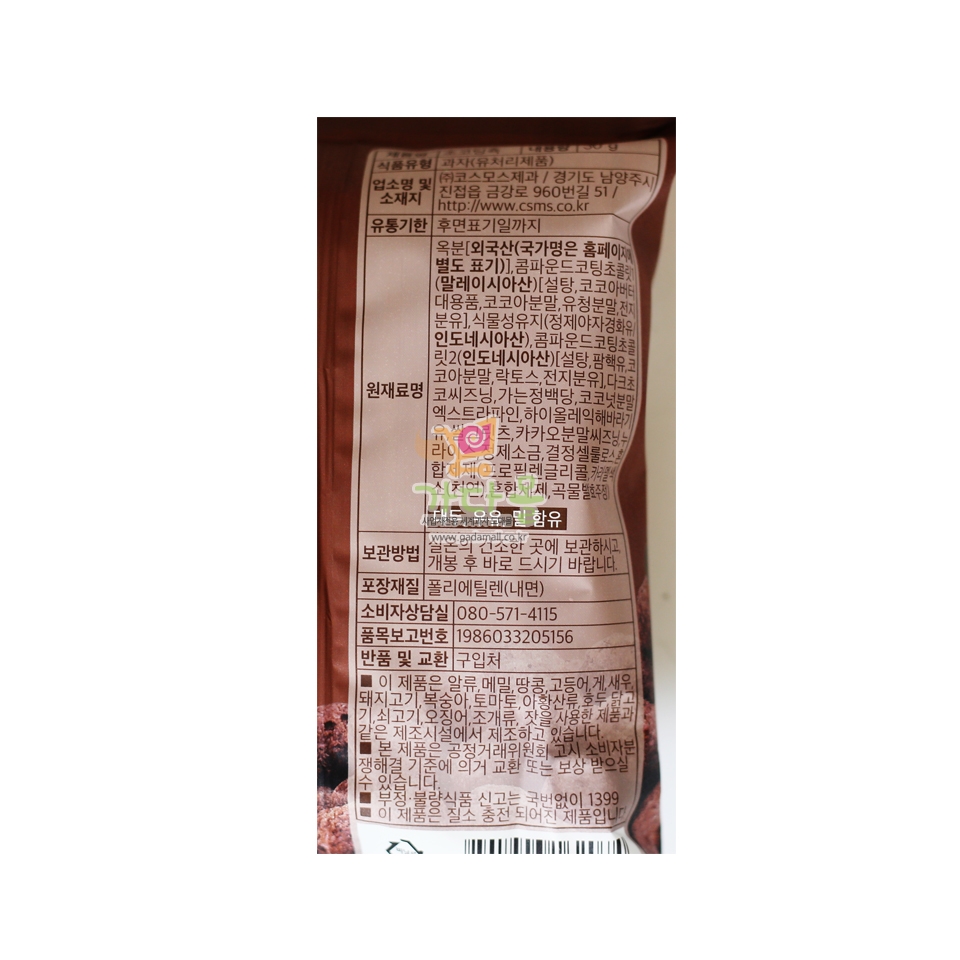 식품유형 과자(유처리제품)
업소명 및 소재지 ㈜코스모스제과 / 경기도 남양주시
진접읍 금강로 960번길 51 /
http://www.csms.co.kr
유통기한 후면표기일까지
원재료명 옥분[외국산(국가명은 홈페이지에
별도 표기)],콤파운드코팅초콜릿1
(말레이시아산)[설탕,코코아버터
대용품,코코아분말,유청분말,전지
분유],식물성유지(정제야자경화유/
인도네시아산),콤파운드코팅초콜
릿2(인도네시아산)[설탕,팜핵유,코
코아분말,락토스,전지분유],다크초
코씨즈닝,가는정백당,코코넛분말
엑스트라파인,하이올레익해바라기
카카오분말씨즈닝
정제소금,결정셀룰로스
합제제[프로필렌글리콜
혼합제제,곡물발효주정)
대두, 우유, 밀 함유
가다몰
www.gadamall.co.kr
보관방법 실온의 건조한 곳에 보관하시고,
개봉 후 바로 드시기 바랍니다.
포장재질 폴리에틸렌(내면)
소비자상담실 080-571-4115
품목보고번호 1986033205156
반품 및 교환 구입처
■ 이 제품은 알류,메밀,땅콩,고등어,게,새우,
돼지고기,복숭아,토마토,아황산류,호두,닭고
기,쇠고기,오징어,조개류, 잣을 사용한 제품과
같은 제조시설에서 제조하고 있습니다.
■ 본 제품은 공정거래위원회 고시 소비자분
쟁해결 기준에 의거 교환 또는 보상 받으실
수 있습니다.
■ 부정·불량식품 신고는 국번없이 1399
■ 이 제품은 질소 충전 되어진 제품입니다